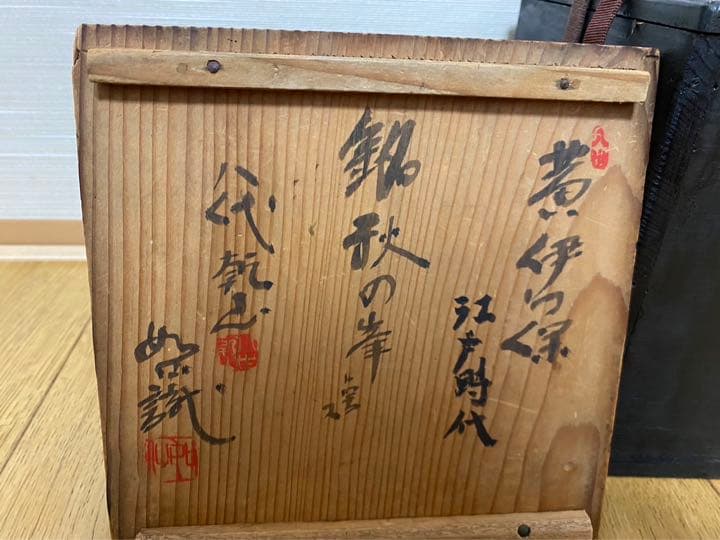 黄伊羅保
江戸時代
銘秋の峯
八代乾山
識